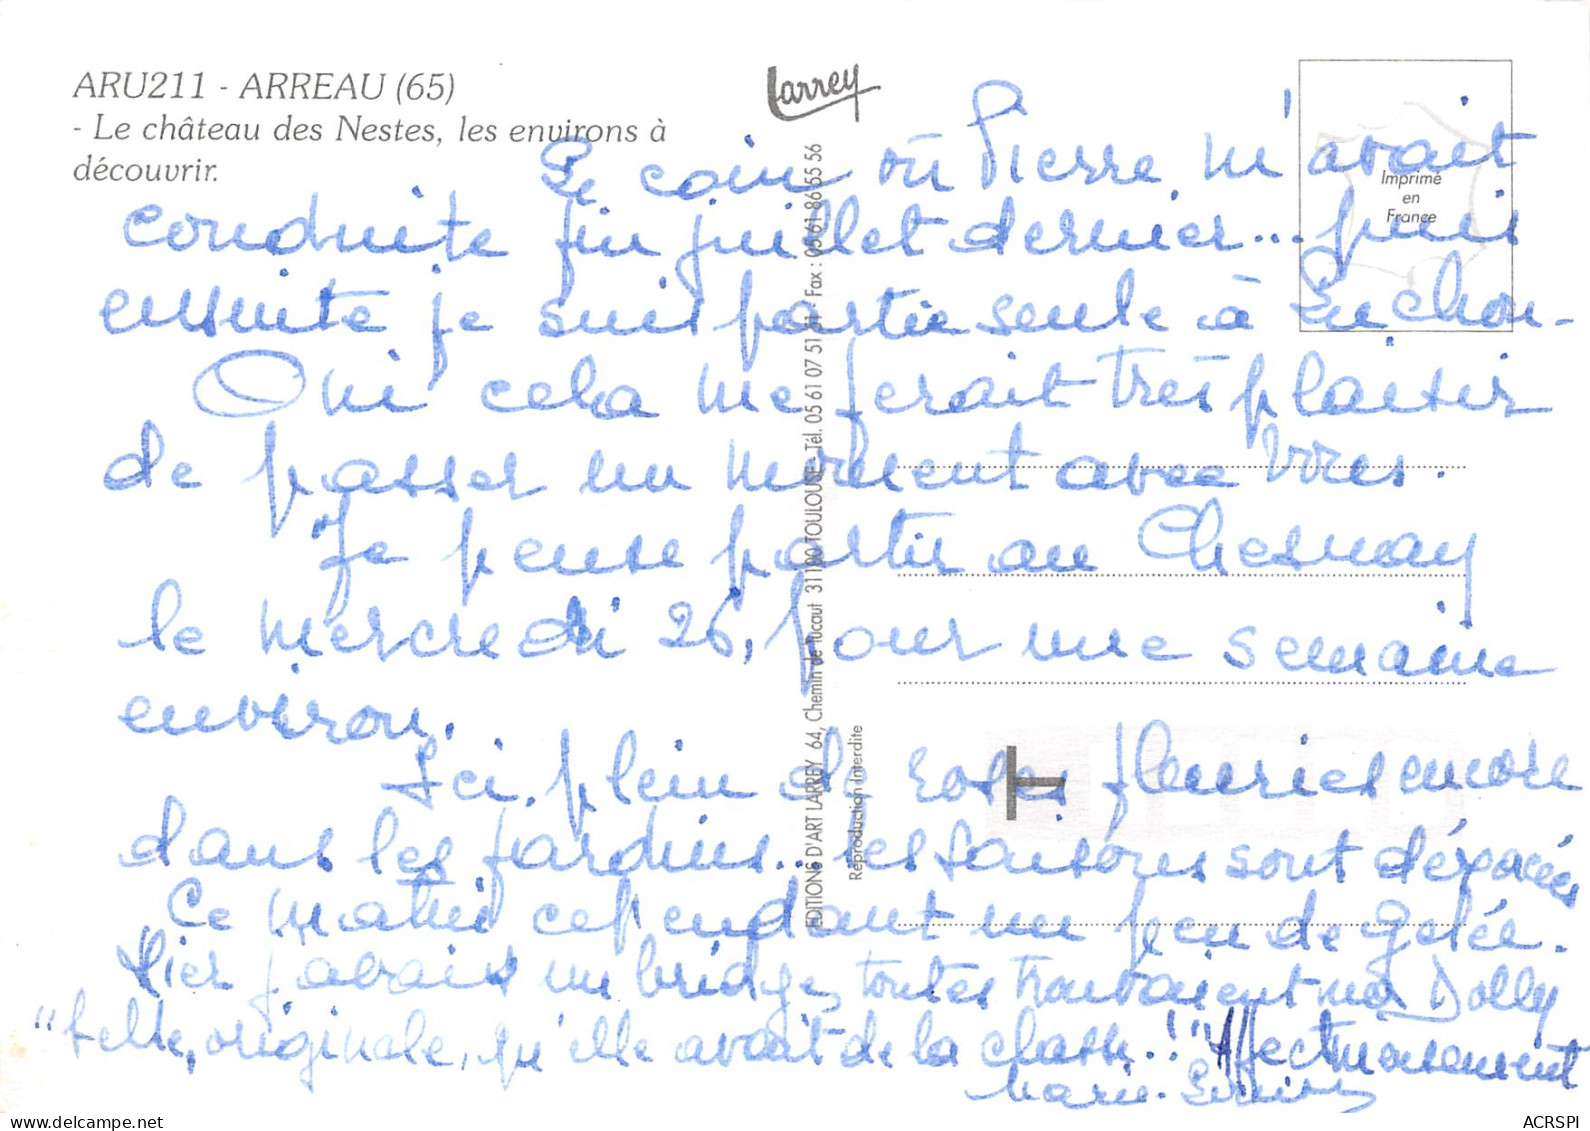 ARU211 - ARREAU (65)
- Le château des Nestes, les environs à
découvrir.
Larrey
Imprimé
en
France
EDITIONS D'ART LARREY 64, Chemin de Tucaut 31100 TOULOUSE - Tél. 05 61 07 51 51 - Fax : 05 61 86 65 56
Reproduction Interdite
Le coin où Pierre m'avait
conduite fin juillet dernier... puis
ensuite je suis partie seule à Luchon -
Oui cela me ferait très plaisir
de passer un moment avec vous.
Je pense partir au Chesnay
le mercredi 26, pour une semaine
environ.
Ici, plein de roses fleuries encore
dans les jardins... les saisons sont déphasées
Ce matin cependant un peu de gelée.
Hier j'avais un bridge, toutes trouvaient ma Dolly
"belle, originale, qu'elle avait de la classe..!" Affectueusement
Marie-
ACRSPI
delcampe.net